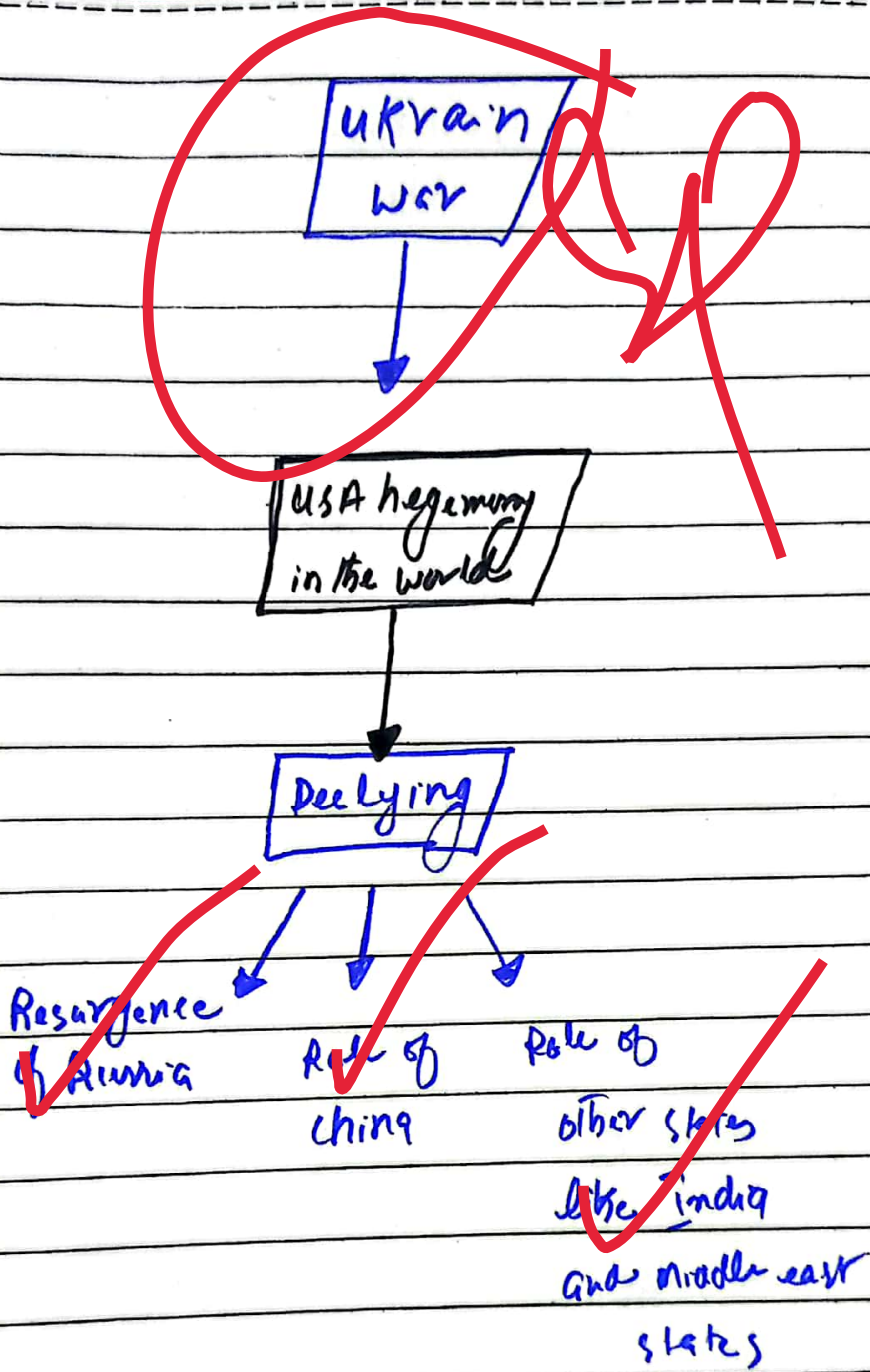 Ukrain
war
USA hegemony
in the world
Deelying
Resurgence
of Russia
Role of
china
Role of
other states
like India
and Middle east
states